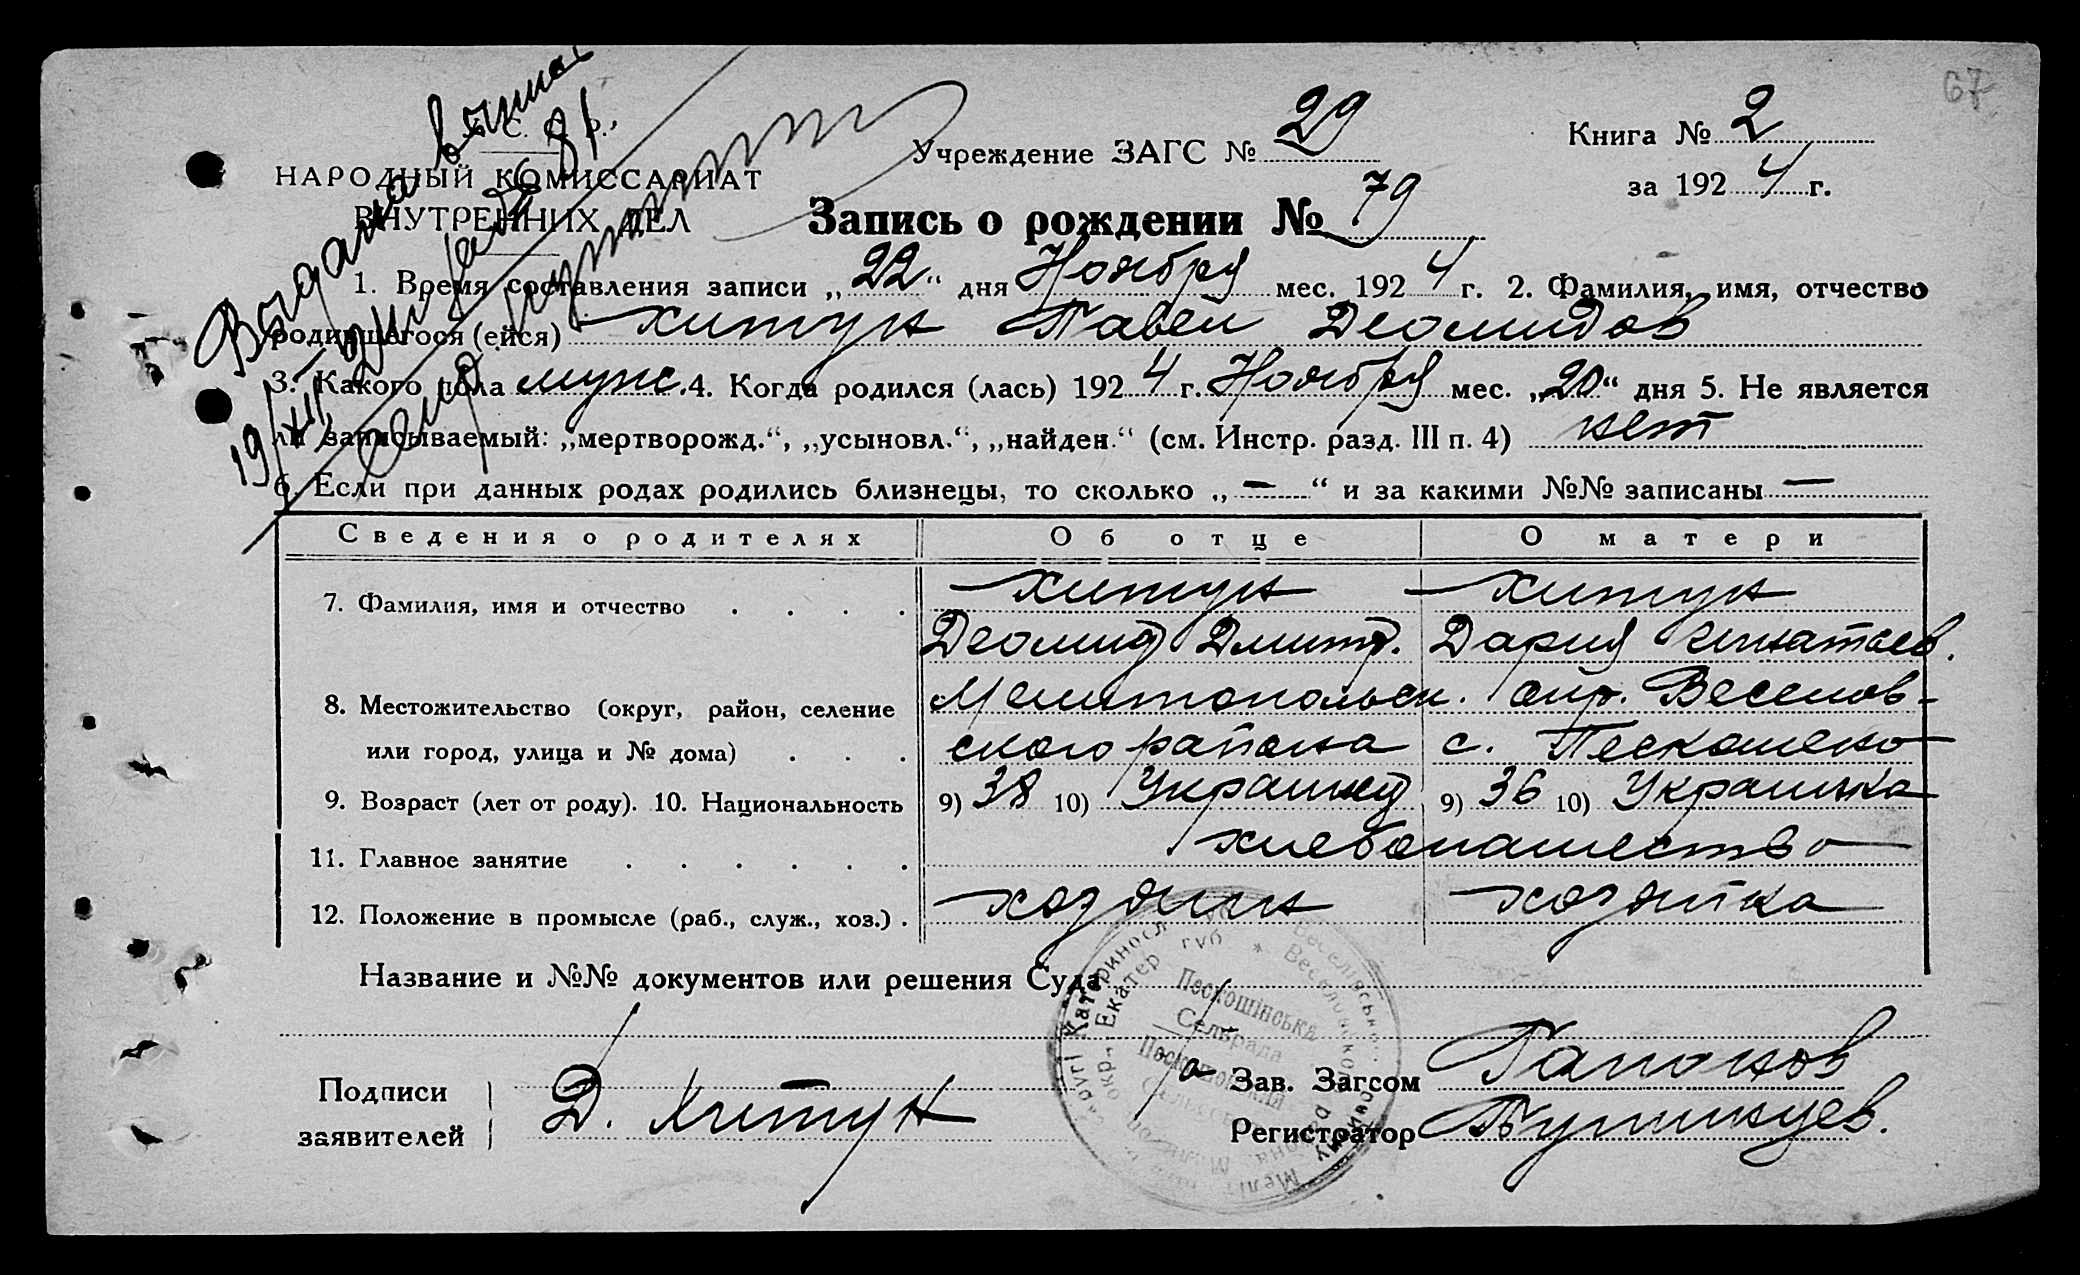 67
С. С. Р.
НАРОДНЫЙ КОМИССАРИАТ
ВНУТРЕННИХ ДЕЛ
Учреждение ЗАГС № 29
Книга № 2
за 1924 г.
Запись о рождении № 79
Выдана выпись
19/XII
1. Время составления записи „22“ дня Ноября мес. 1924 г. 2. Фамилия, имя, отчество
родившегося (ейся) Хитун Павел Деомидов
3. Какого пола мужс. 4. Когда родился (лась) 1924 г. Ноября мес. „20“ дня 5. Не является
ли записываемый: „мертворожд.“, „усыновл.“, „найден.“ (см. Инстр. разд. III п. 4) нет
6. Если при данных родах родились близнецы, то сколько „—“ и за какими №№ записаны —
Сведения о родителях Об отце О матери
7. Фамилия, имя и отчество . . . . Хитун Хитун
Деомид Дмитр. Дария Игнатьев.
8. Местожительство (округ, район, селение Мелитопольск. окр. Веселов-
или город, улица и № дома) . . . ского района с. Пескошено
9. Возраст (лет от роду). 10. Национальность 9) 38 10) Украинец 9) 36 10) Украинка
11. Главное занятие . . . . . . хлебопашество
12. Положение в промысле (раб., служ., хоз.) . хозяин хозяйка
Название и №№ документов или решения Суда
Пескошінська
Сельрада
Подписи
заявителей
Д. Хитун
Зав. Загсом Гапонов
Регистратор